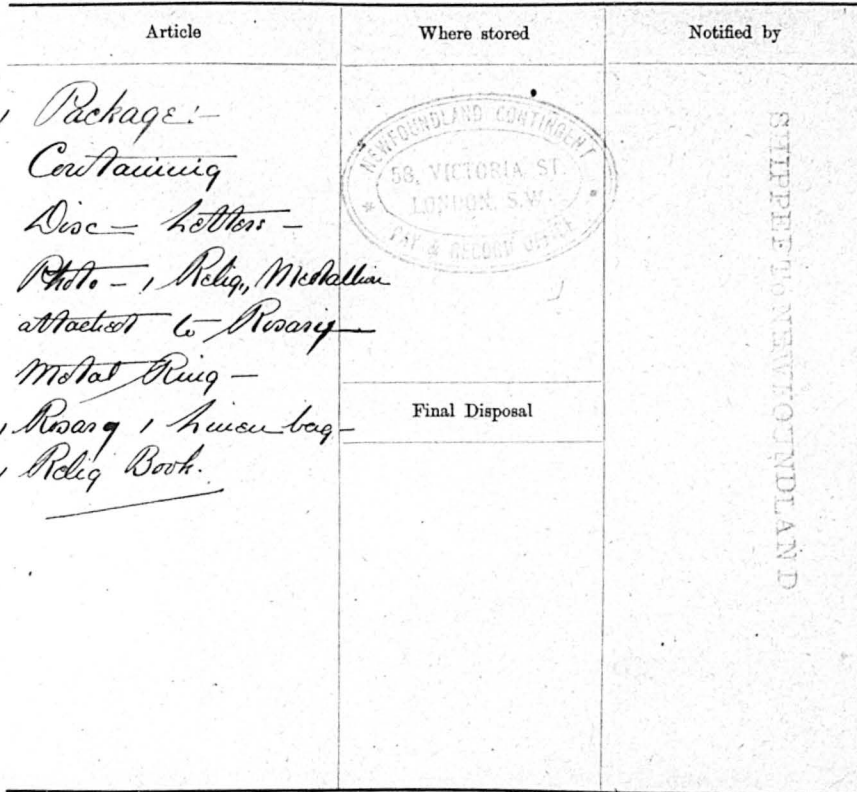 Article
Where stored
Notified by
1 Package:-
Containing
Disc = Letters -
Photo - 1 Relig, Medallion
attached to Rosary -
Metal Ring -
1 Rosary 1 Linen bag -
1 Relig Book.
NEWFOUNDLAND CONTINGENT
58, VICTORIA ST.
LONDON, S.W.
* PAY & RECORD OFFICE *
Final Disposal
SHIPPED TO NEWFOUNDLAND